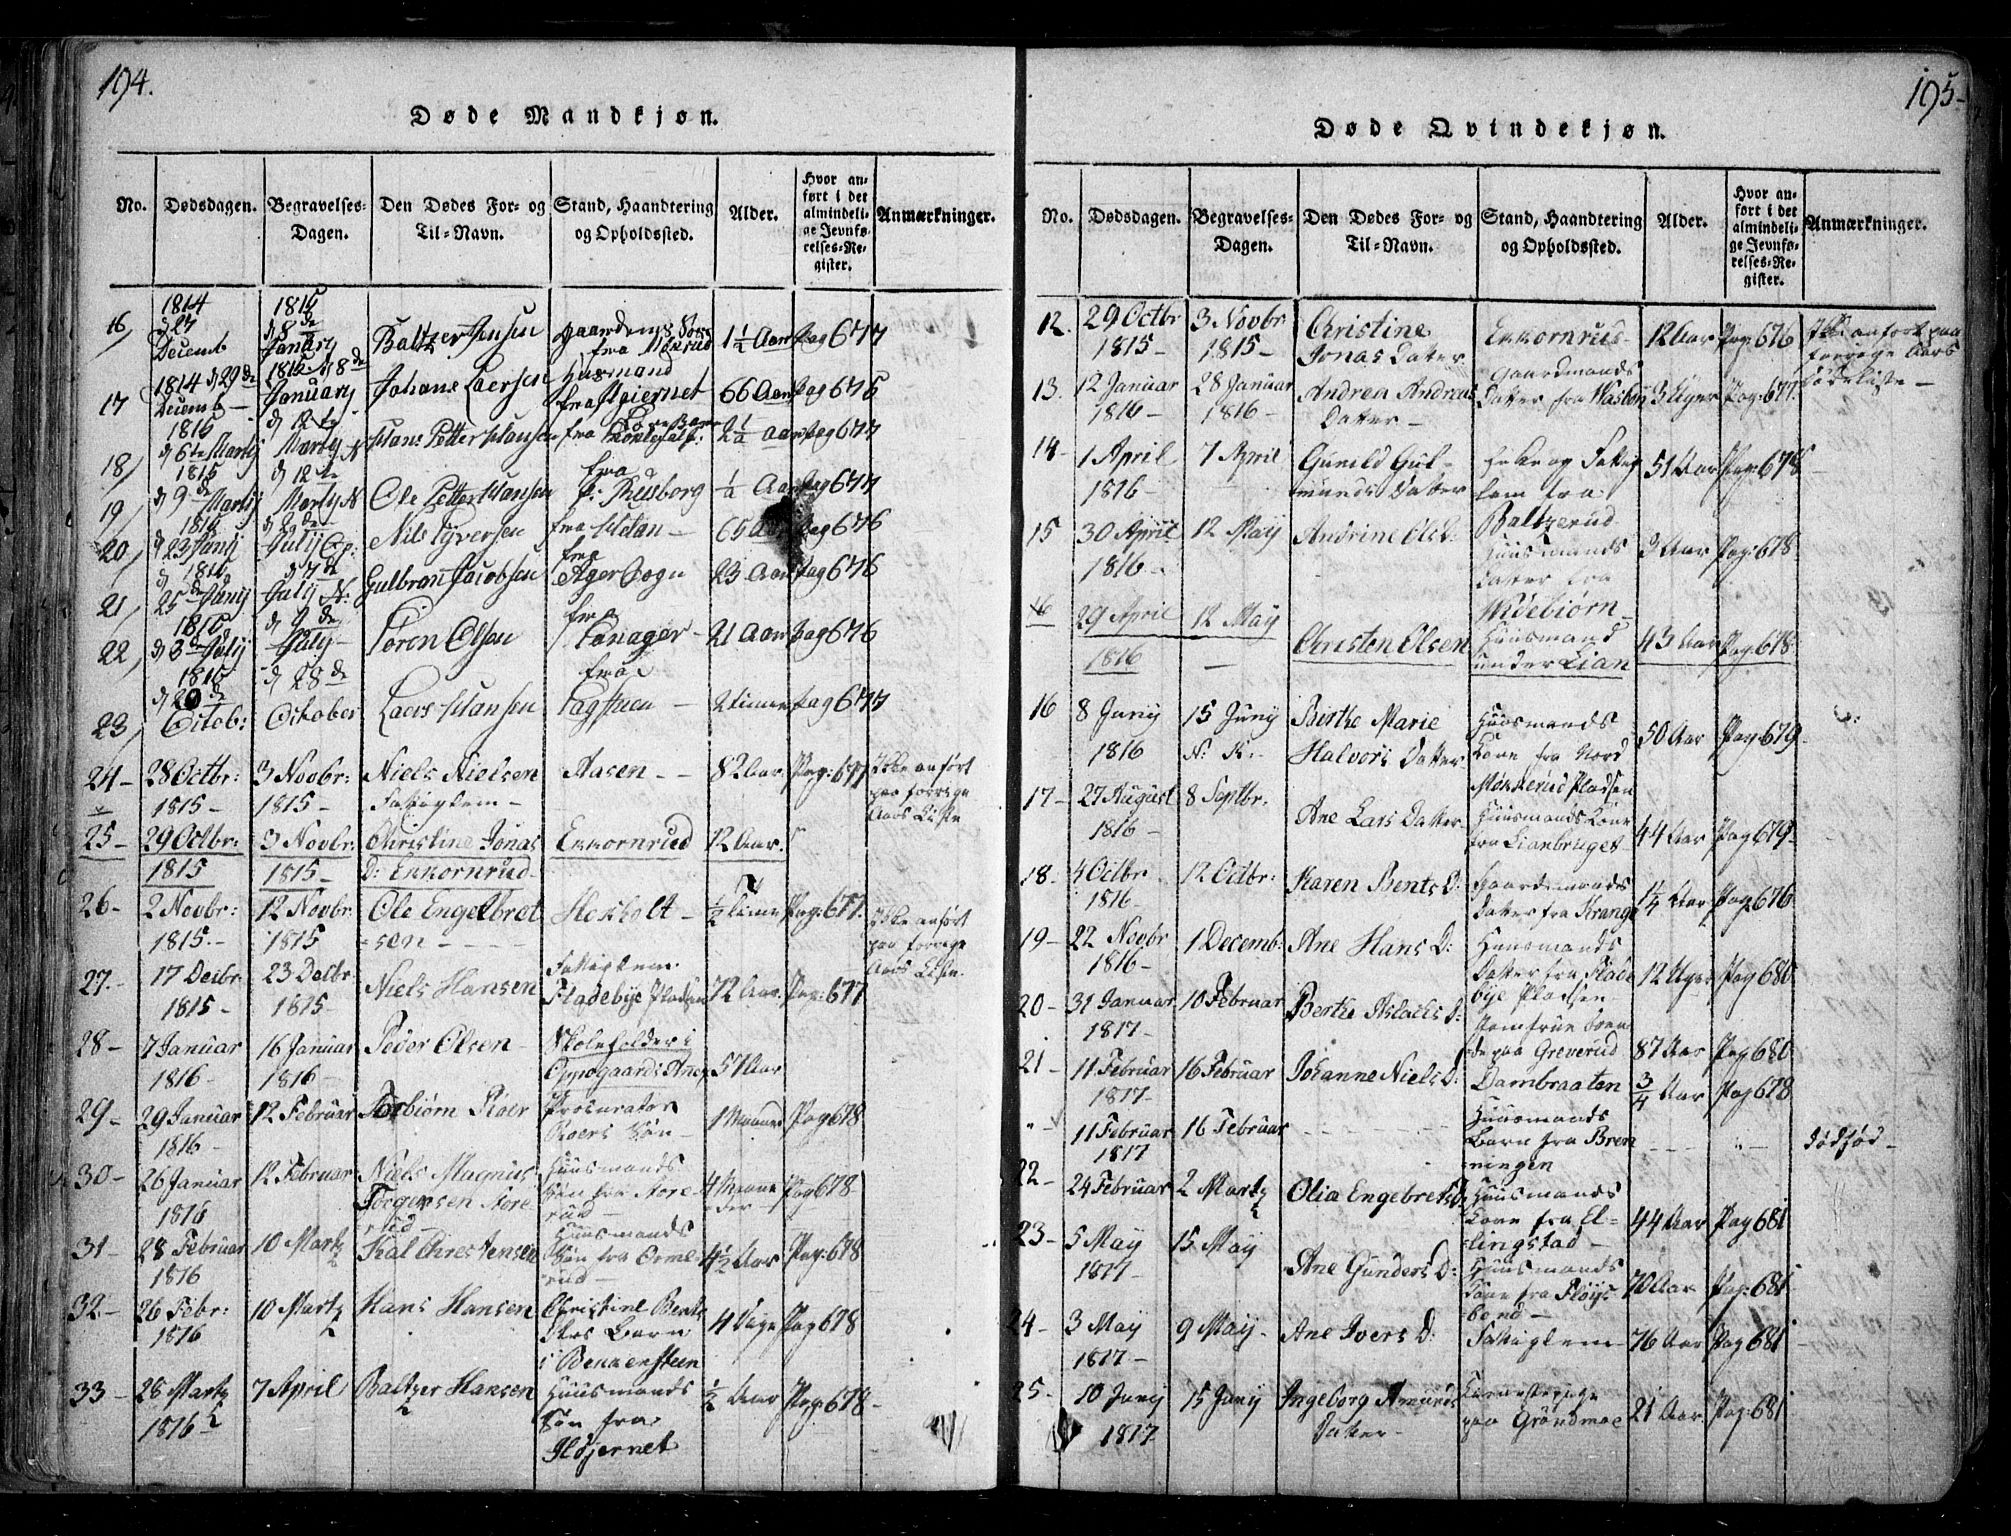 194.
Døde Mandkjøn.
No. Dødsdagen. Begravelses-Dagen. Den Dødes For- og Til-Navn. Stand, Haandtering og Opholdssted. Alder. Hvor anført i det almindelige Jevnførelses-Register. Anmærkninger.
16 1814 d 27 Decemb 1815 d 8de January Baltzer Jensen gaardmens Søn fra 1½ Aar pag 677
17 1814 d 29de Decemb 1815 d 8de January Johans Laersen Husmand fra Ilgiernet 66 Aar pag 676
18 1815 d 6te Martij d 12te Martij N Hans Petter Hansen fra 2½ Aar pag 677
19 1815 d 9de Martij d 12te Martij N Ole Petter Hansen fra ½ Aar pag 677
20 1815 d 23 Junij d 2den July Nils Syversen fra 65 Aar pag 676
21 1815 25de Junij d 7de July N: Gulbran Jacobsen fra Ager Sogn 23 Aar pag 676
22 1815 d 3de July d 9de July Søren Olsen fra Sonager 21 Aar pag 676
23 1815 d 20de Octob: d 28de October Laers Hansen fra Fagstuen 2 timer pag 677
24 28 Octbr: 1815 3 Novbr: 1815 Niels Nielsen Fattiglem Aasen 82 Aar. Pag: 677 Ikke anført paa forrige Aars Liste
25 29 Octbr: 1815 3 Novbr: 1815 Christine Jonas D: Ekkornrud Ekkornrud 12 Aar.
26 2 Novbr: 1815 12 Novbr. 1815 Ole Engelbretsen Hexholt ½ Time Pag: 677. Ikke anført paa forrige Aars Liste.
27. 17 Decbr. 1815 23 Decbr. 1815 Niels Hansen Fattiglem Fladebye Pladsen 72 Aar. Pag: 677
28 7 Januar 1816 16 Januar 1816 Peder Olsen Skoleholder i Oppegaards Anex 51 Aar
29 29 Januar 1816 12 Februar Torbiørn Roer Procurator Roers Søn 1 Maaned Pag 678
30 26 Januar 1816 12 Februar Niels Magnus Jørgensen Norerud Huusmands Søn fra Norerud 4 Maaneder Pag 678
31 28 Februar 1816 10 Martz Kal Christensen Huusmands Søn fra Ormerud 4½ Aar Pag: 678
32 26 Febr: 1816 10 Martz Hans Hansen Christine Bents Dters Barn i Bekkensteen 4 Dage Pag 678
33 28 Martz 1816 7 April Baltzer Hansen Huusmands Søn fra Ildjernet ½ Aar Pag: 678
195
Døde Qvindekjøn.
No. Dødsdagen. Begravelses-Dagen. Den Dødes For- og Til-Navn. Stand, Haandtering og Opholdssted. Alder. Hvor anført i det almindelige Jevnførelses-Register. Anmærkninger.
12. 29 Octbr 1815 3 Novbr 1815 Christine Jonas Datter Ekkornrud 12 Aar Pag: 676 Ikke anført paa forrige Aars Dødeliste
13. 12 Januar 1816 28 Januar 1816 Andrea Andreas Datter Gaardmands Datter fra 3 Uger Pag: 677.
14 1 April 1816 7 April Gunild Gulmunds Datter Fattiglem fra Baltzerud 51 Aar Pag: 678
15 30 April 1816 12 May Andrine Ols D: Huusmands Datter fra Midebiørn 3 Aar Pag: 678
16 29 April 1816 12 May Christen Olsen Huusmand under Lian 43 Aar Pag: 678
16 8 Junij 1816 15 Junij N: K: Berthe Marie Halvors Datter Huusmands Kone fra Nord Mokkerud Pladsen 50 Aar Pag: 679
17 27 August 1816 8 Septbr. Ane Lars Datter Huusmands Kone fra Lianbruget 44 Aar Pag 679
18. 4 Octbr 1816 12 Octbr: Karen Bents D: Gaardmands Datter fra Krange 1¼ Aar Pag 676
19 22 Novbr 1816 1 Decemb: Ane Hans D: Huusmands Datter fra Fladebye Pladsen 12 Uger Pag 680
20 31 Januar 1817 10 Februar Berthe Aslachs D: Jomfrue boende paa Greverud 87 Aar Pag 680
21 11 Februar 1817 16 Februar Johanne Niels D: Dambraaten ¾ Aar Pag 678
11 Februar 1817 16 Februar Huusmands Barn fra Brenningen Dødfød
22 24 Februar 2 Martz Olia Engebrets D: Huusmands Kone fra Ellingstad 44 Aar Pag 681
23 5 May 1817 15 May Ane Gunders D: Huusmands Kone fra Fløysbond 70 Aar Pag: 681
24 3 May 1817 9 May Ane Ivers D: Fattiglem 76 Aar Pag 681
25 10 Junij 1817 15 Junij Ingeborg Amunds Datter paa Grøndmoe 21 Aar Pag: 681